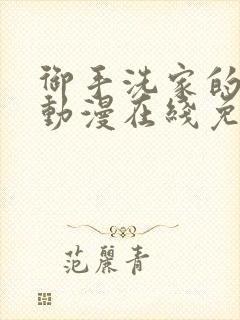 御手洗家的
動漫在綫免
范麗青